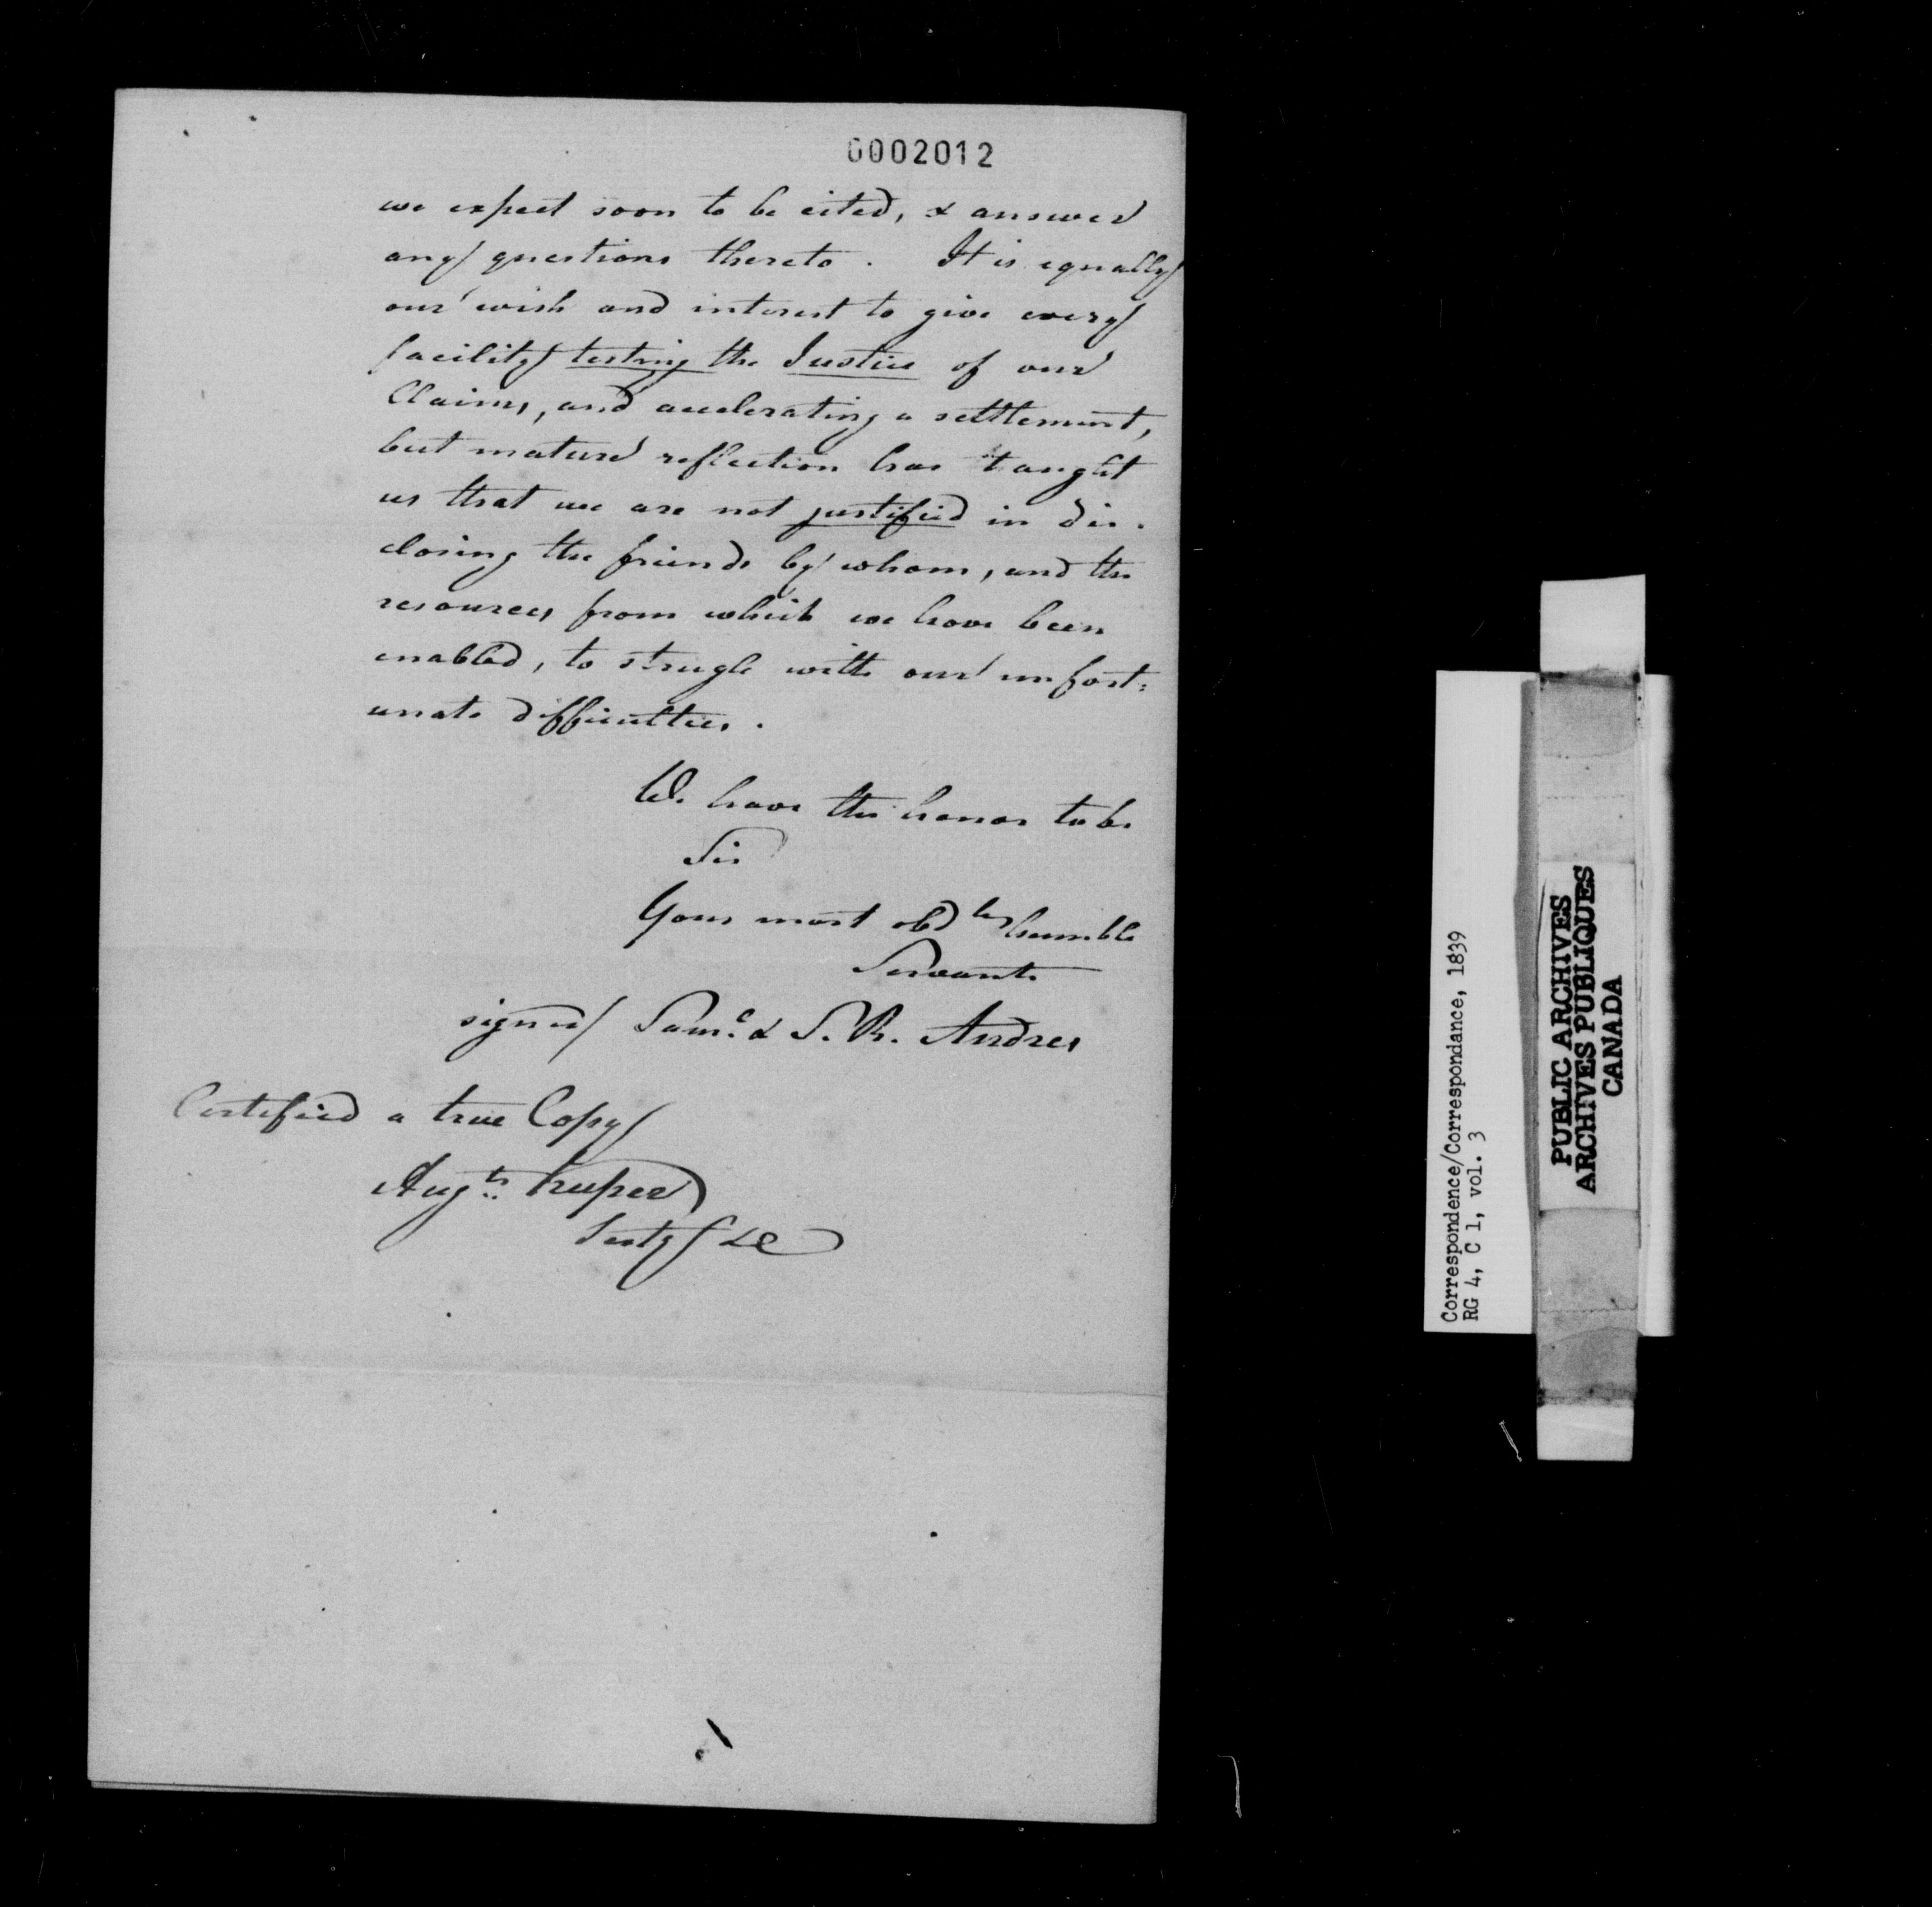 0002012
we expect soon to be cited, & answer
any questions thereto. It is equally
our wish and interest to give every
facility testing the Justice of our
Claims, and accelerating a settlement,
but mature reflection has taught
us that we are not justified in dis-
closing the friends by whom, and the
resources from which we have been
enabled, to strugle with our unfort=
unate difficulties.
We have the honor to be
Sir
Your most obd humble
Servants
signed/ Saml. & S. R. Andres
Certified a true Copy
Augts.
Secty
Correspondence/Correspondance, 1839
RG 4, C 1, vol. 3
PUBLIC ARCHIVES
ARCHIVES PUBLIQUES
CANADA